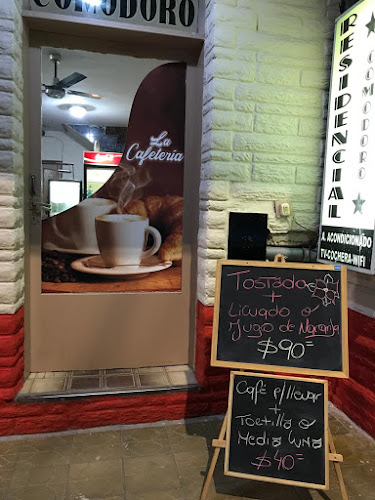 COMODORO
COMODORO
La
Cafetería
RESIDENCIAL
COMODORO
A. ACONDICIONADO
TV-COCHERA-WIFI
Tostado
+
Licuado o
Jugo de Naranja
$90=
Café p/llevar
+
Tortilla o
Media Luna
$40=